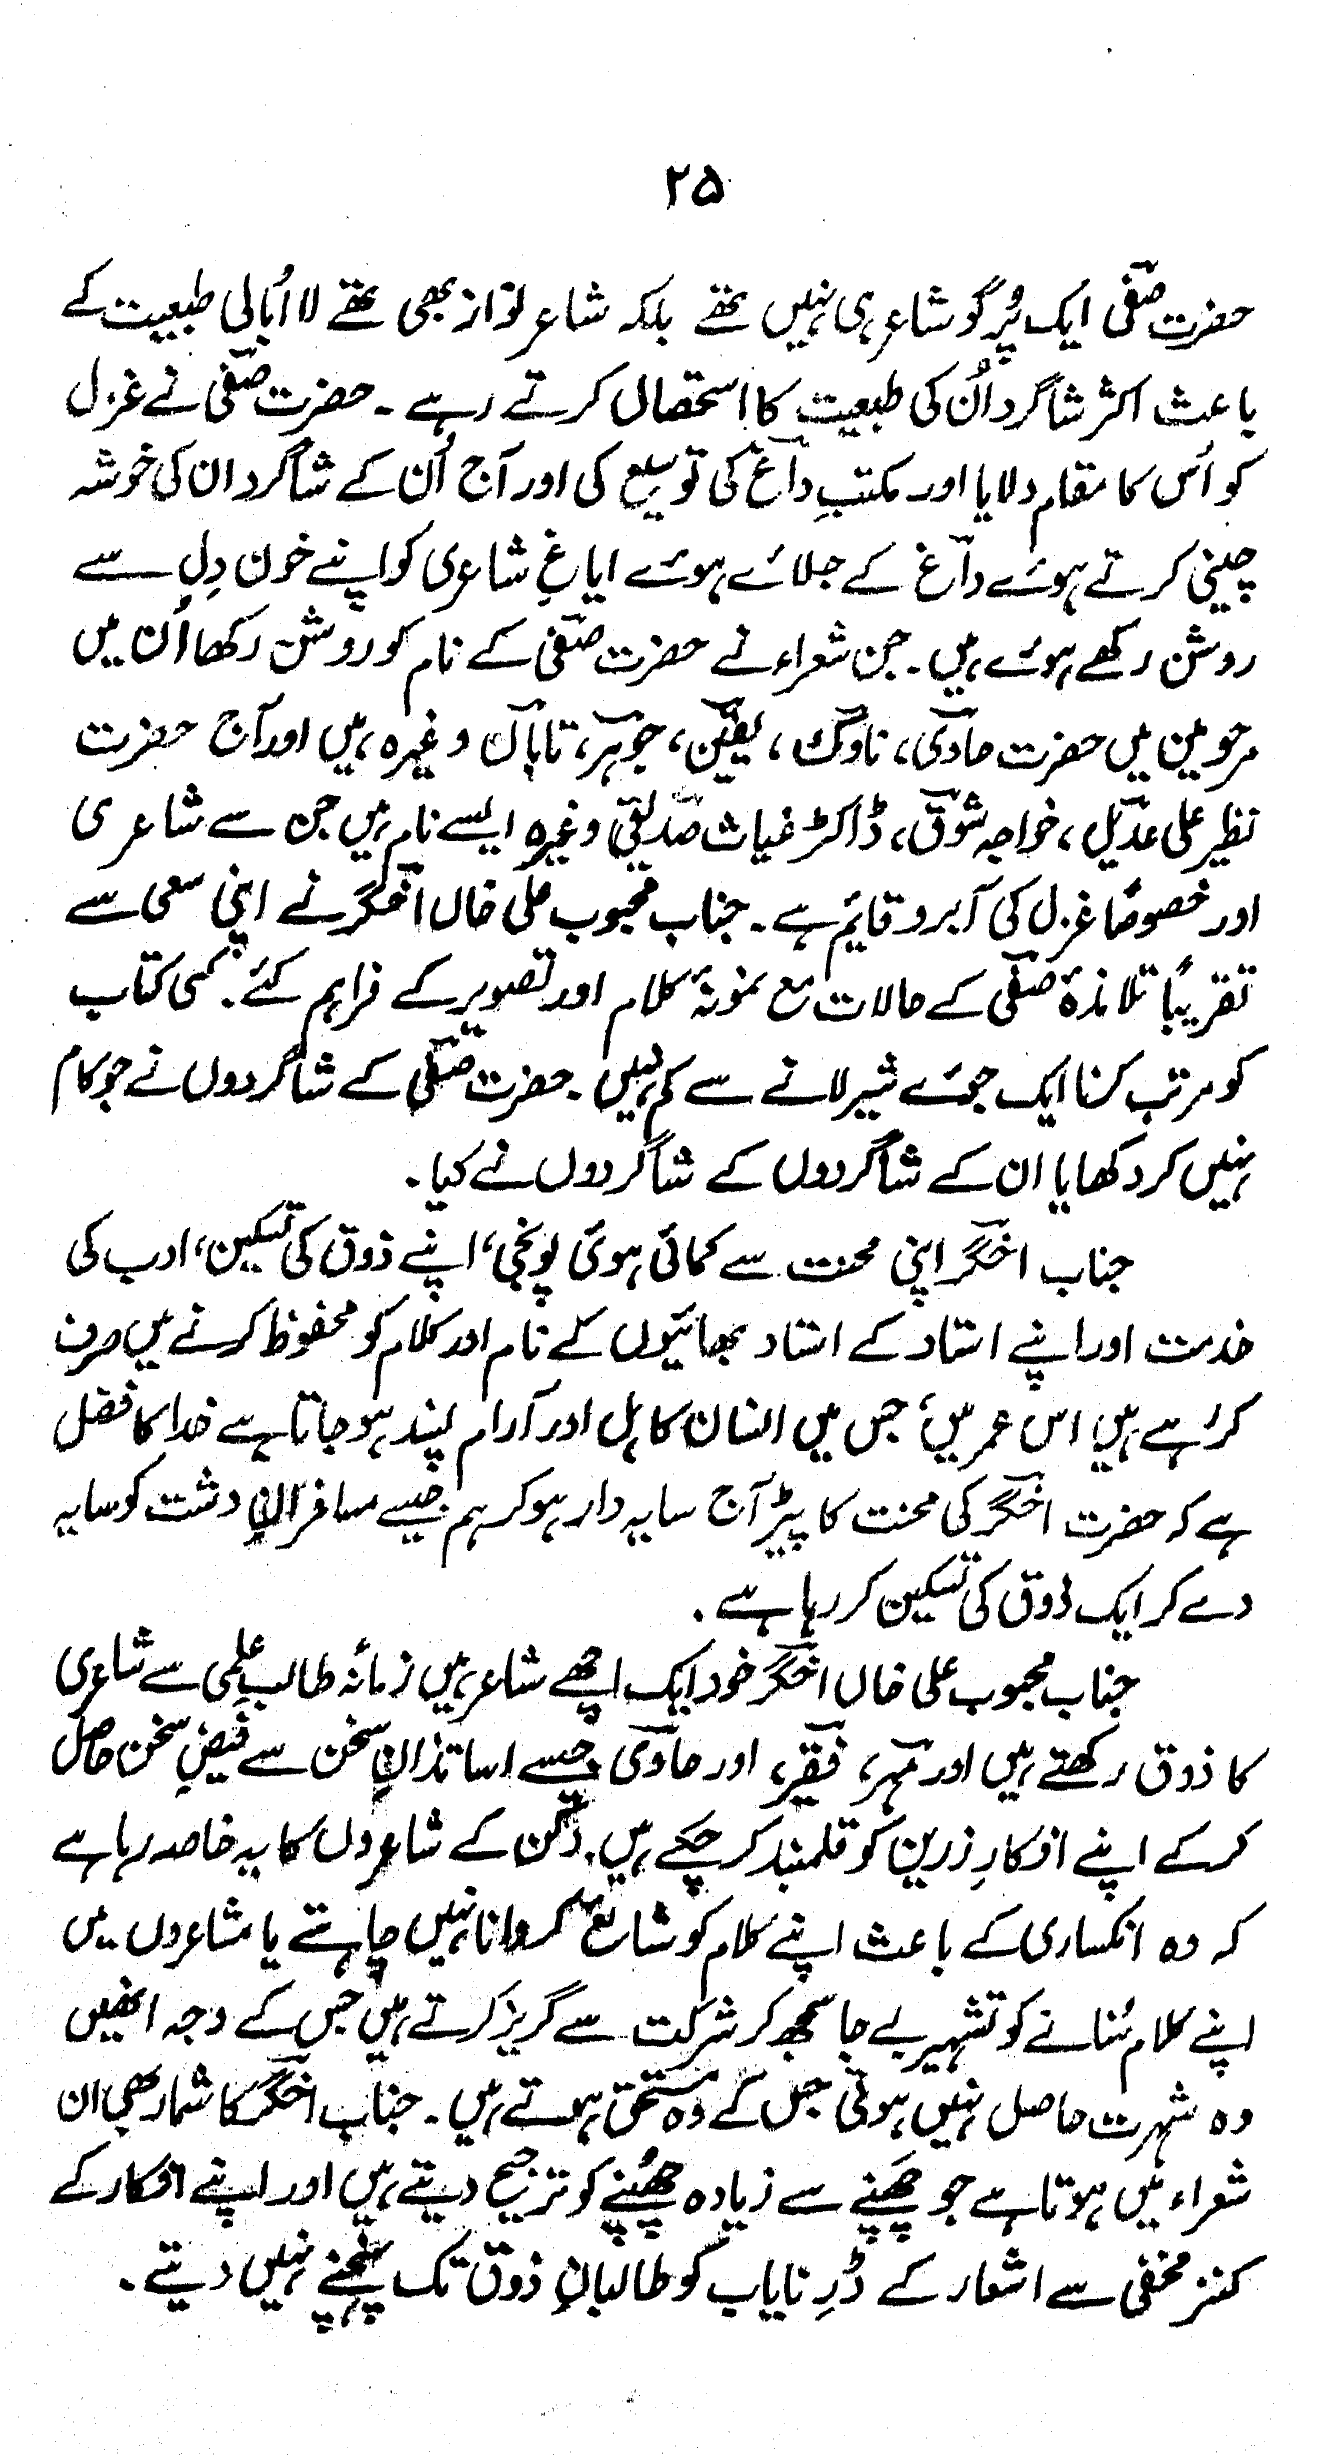 ۲۵
حضرت صفیؔ ایک پُر گو شاعر ہی نہیں تھے بلکہ شاعر نواز بھی تھے لا اُبالی طبیعت کے
باعث اکثر شاگرد اُن کی طبیعت کا استحصال کرتے رہے ۔ حضرت صفیؔ نے غزل
کو اُس کا مقام دلایا اور مکتبِ داغؔ کی توسیع کی اور آج اُن کے شاگرد ان کی خوشہ
چینی کرتے ہوئے داغؔ کے جلائے ہوئے ایاغِ شاعری کو اپنے خون دِل سے
روشن رکھے ہوئے ہیں ۔ جن شعراء نے حضرت صفیؔ کے نام کو روشن رکھا اُن میں
مرحومین میں حضرت حاویؔ، ناوکؔ ، یقینؔ، جوہرؔ، تاباںؔ وغیرہ ہیں اور آج حضرت
نظیر علی عدیلؔ ، خواجہ شوقؔ، ڈاکٹر غیاث صدیقیؔ وغیرہ ایسے نام ہیں جن سے شاعری
اور خصوصاً غزل کی آبرو قایم ہے ۔ جناب محبوب علی خاں اخگرؔ نے اپنی سعی سے
تقریباً تلامذۂ صفیؔ کے حالات مع نمونۂ کلام اور تصویر کے فراہم کئے ۔ کسی کتاب
کو مرتب کرنا ایک جوئے شیر لانے سے کم نہیں ۔ حضرت صفیؔ کے شاگردوں نے جو کام
نہیں کر دکھایا ان کے شاگردوں کے شاگردوں نے کیا ۔
جناب اخگرؔ اپنی محنت سے کمائی ہوئی پونجی، اپنے ذوق کی تسکین، ادب کی
خدمت اور اپنے استاد کے استاد بھائیوں کے نام اور کلام کو محفوظ کرنے میں صرف
کر رہے ہیں اس عمر میں جس میں انسان کاہل اور آرام پسند ہو جاتا ہے خدا کا فضل
ہے کہ حضرت اخگرؔ کی محنت کا پیڑ آج سایہ دار ہو کر ہم جیسے مسافرانِ دشت کو سایہ
دے کر ایک ذوق کی تسکین کر رہا ہے ۔
جناب محبوب علی خاں اخگرؔ خود ایک اچھے شاعر ہیں زمانۂ طالب علمی سے شاعری
کا ذوق رکھتے ہیں اور مہرؔ، فقیرؔ، اور حاویؔ جیسے اساتذانِ سخن سے فیضِ سخن حاصل
کر کے اپنے افکارِ زرین کو قلمبند کر چکے ہیں ۔ دکن کے شاعروں کا یہ خاصہ رہا ہے
کہ وہ انکساری کے باعث اپنے کلام کو شائع کروانا نہیں چاہتے یا مشاعروں میں
اپنے کلام سُنانے کو تشہیر بے جا سمجھ کر شرکت سے گریز کرتے ہیں جس کے وجہ انھیں
وہ شہرت حاصل نہیں ہوتی جس کے وہ مستحق ہوتے ہیں ۔ جناب اخگرؔ کا شمار بھی ان
شعراء میں ہوتا ہے جو چَھپنے سے زیادہ چُھپنے کو ترجیح دیتے ہیں اور اپنے افکار کے
کنز مخفی سے اشعار کے دُرِ نایاب کو طالبانِ ذوق تک پہنچنے نہیں دیتے ۔